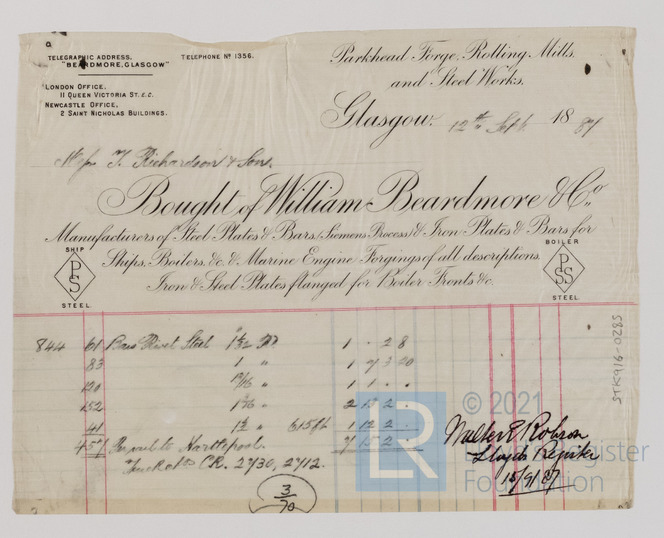 TELEGRAPHIC ADDRESS,
"BEARDMORE, GLASGOW"
TELEPHONE No 1356.
LONDON OFFICE,
11 QUEEN VICTORIA ST. E.C.
NEWCASTLE OFFICE,
2 SAINT NICHOLAS BUILDINGS.
Parkhead Forge, Rolling Mills,
and Steel Works.
Glasgow, 12th Sept 1887
T. Richardson & Sons
Bought of William Beardmore & Co.,
Manufacturers of Steel Plates & Bars, (Siemens Process) & Iron Plates & Bars for
Ships, Boilers, &c. & Marine Engine Forgings of all descriptions.
Iron & Steel Plates flanged for Boiler Fronts &c.
SHIP
PS
STEEL
BOILER
PSS
STEEL
844 61 Bars Rivet Steel 1 . 2 8
83 1 " 1 7 3 20
120 " 1 1 . .
152 " 2 13 2 .
41 " 1 12 2 .
457 to Hartlepool 7 15 2 .
C.R. 2730, 2712.
3/70
Walter E Robson
Lloyds Register
15/9/87
STK916-0285
© 2021
LR
Lloyd's Register
Foundation